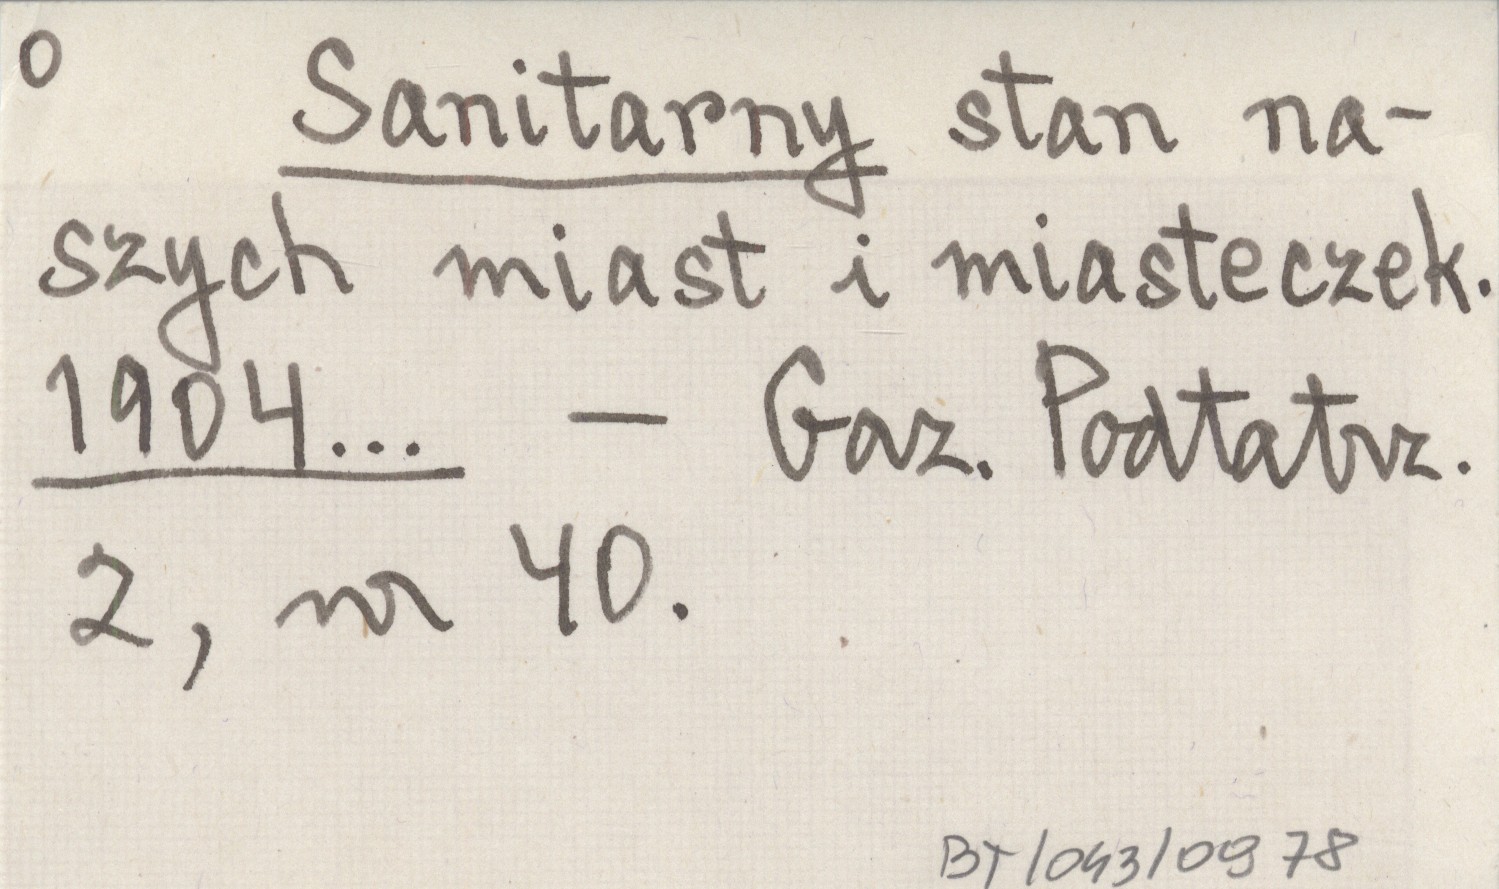 O
Sanitarny stan na-
szych miast i miasteczek.
1904... – Gaz. Podtatrz.
2, nr 40.
BT/043/0978